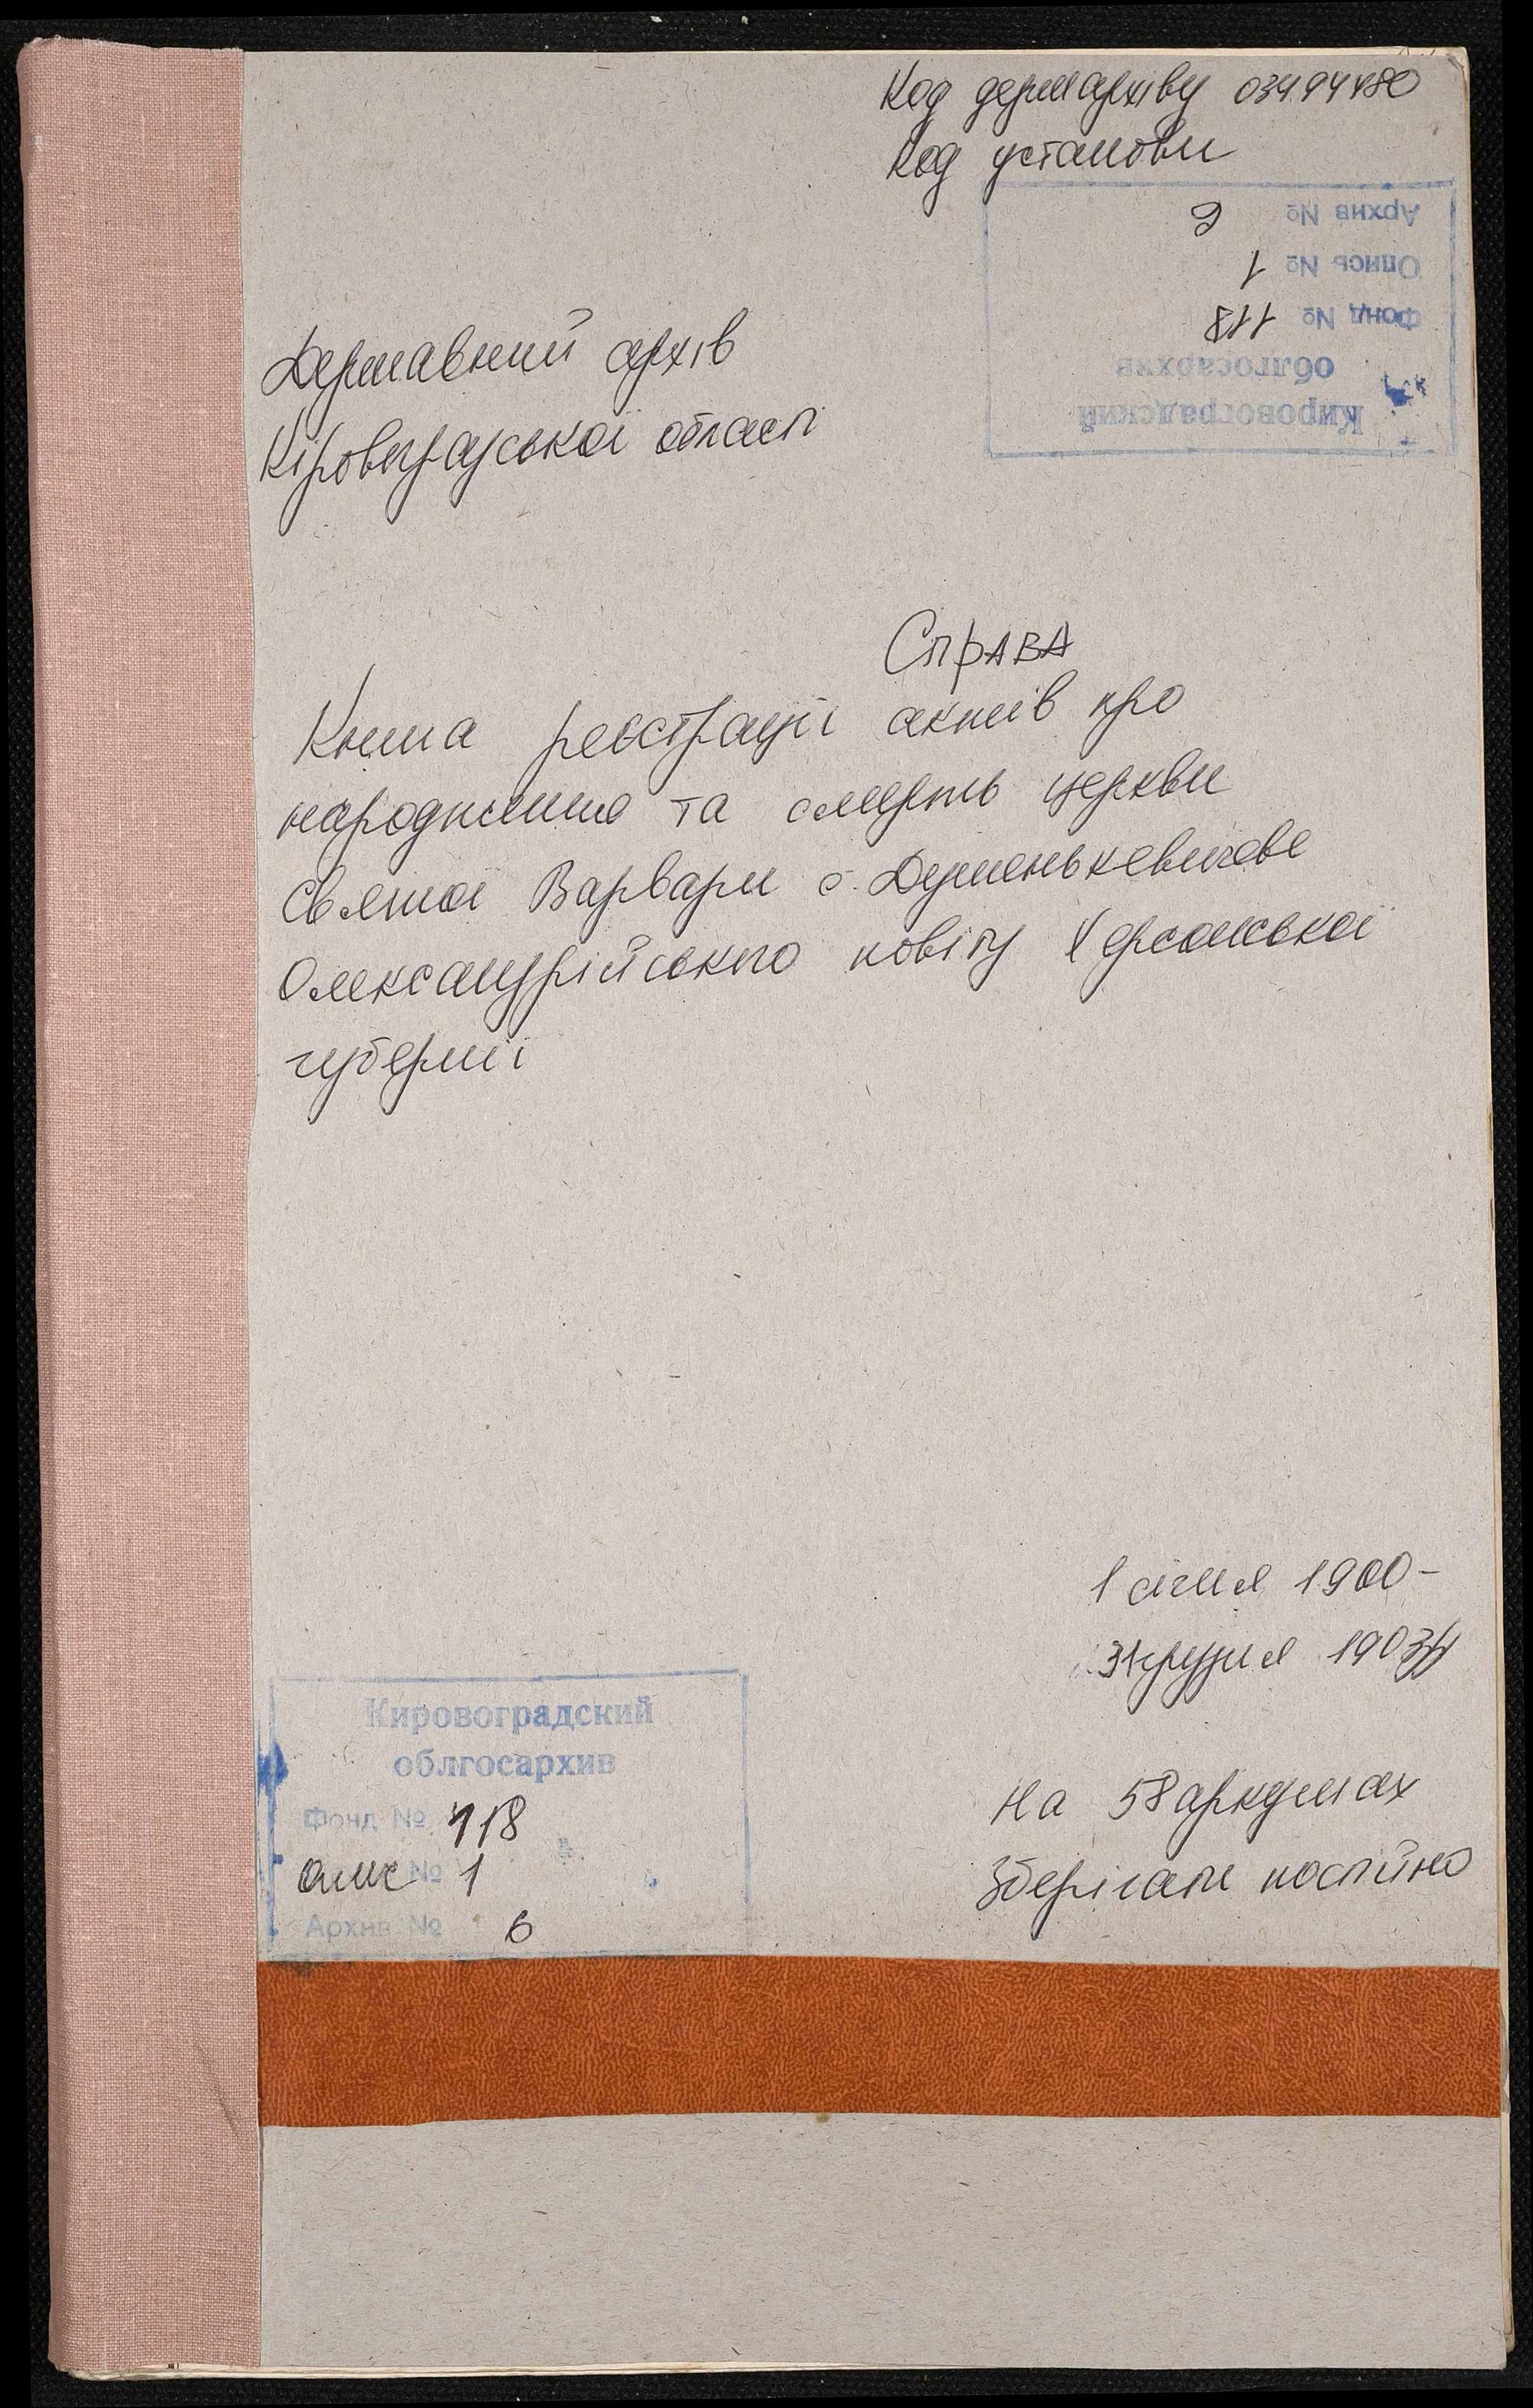 Код держархіву 03494480
Код установи
Кировоградский
облгосархив
Фонд № 118
Опись № 1
Архив № 6
Державний архів
Кіровоградської області
Справа
Книга реєстрації актів про
народження та смерть церкви
Святої Варвари с. Думенькевичеве
Олександрійського повіту Херсонської
губернії
1 січня 1900 -
31 грудня 1903
Кировоградский
облгосархив
Фонд № 118
Опис № 1
Архив № 6
На 58 аркушах
Зберігати постійно